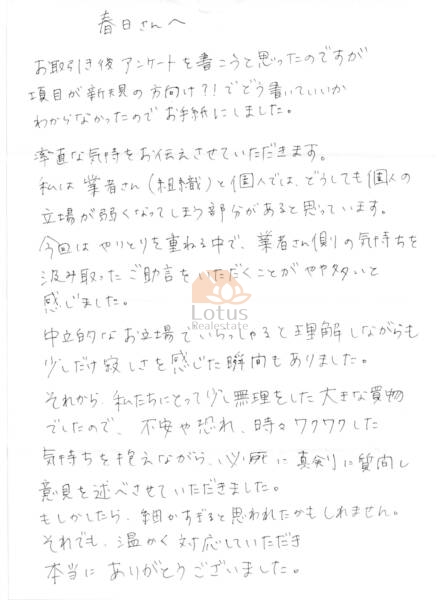 春日さんへ
お取引き後アンケートを書こうと思ったのですが
項目が新規の方向け?!でどう書いていいか
わからなかったのでお手紙にしました。
率直な気持をお伝えさせていただきます。
私は業者さん(組織)と個人では、どうしても個人の
立場が弱くなってしまう部分があると思っています。
今回はやりとりを重ねる中で、業者さん側の気持ちを
汲み取ったご助言をいただくことがやや多いと
感じました。
Lotus
Realestate
中立的なお立場でいらっしゃると理解しながらも
少しだけ寂しさを感じた瞬間もありました。
それから、私たちにとって少し無理をした大きな買物
でしたので、不安や恐れ、時々ワクワクした
気持ちを抱えながら、必死に真剣に質問し
意見を述べさせていただきました。
もしかしたら、細かすぎると思われたかもしれません。
それでも、温かく対応していただき
本当にありがとうございました。